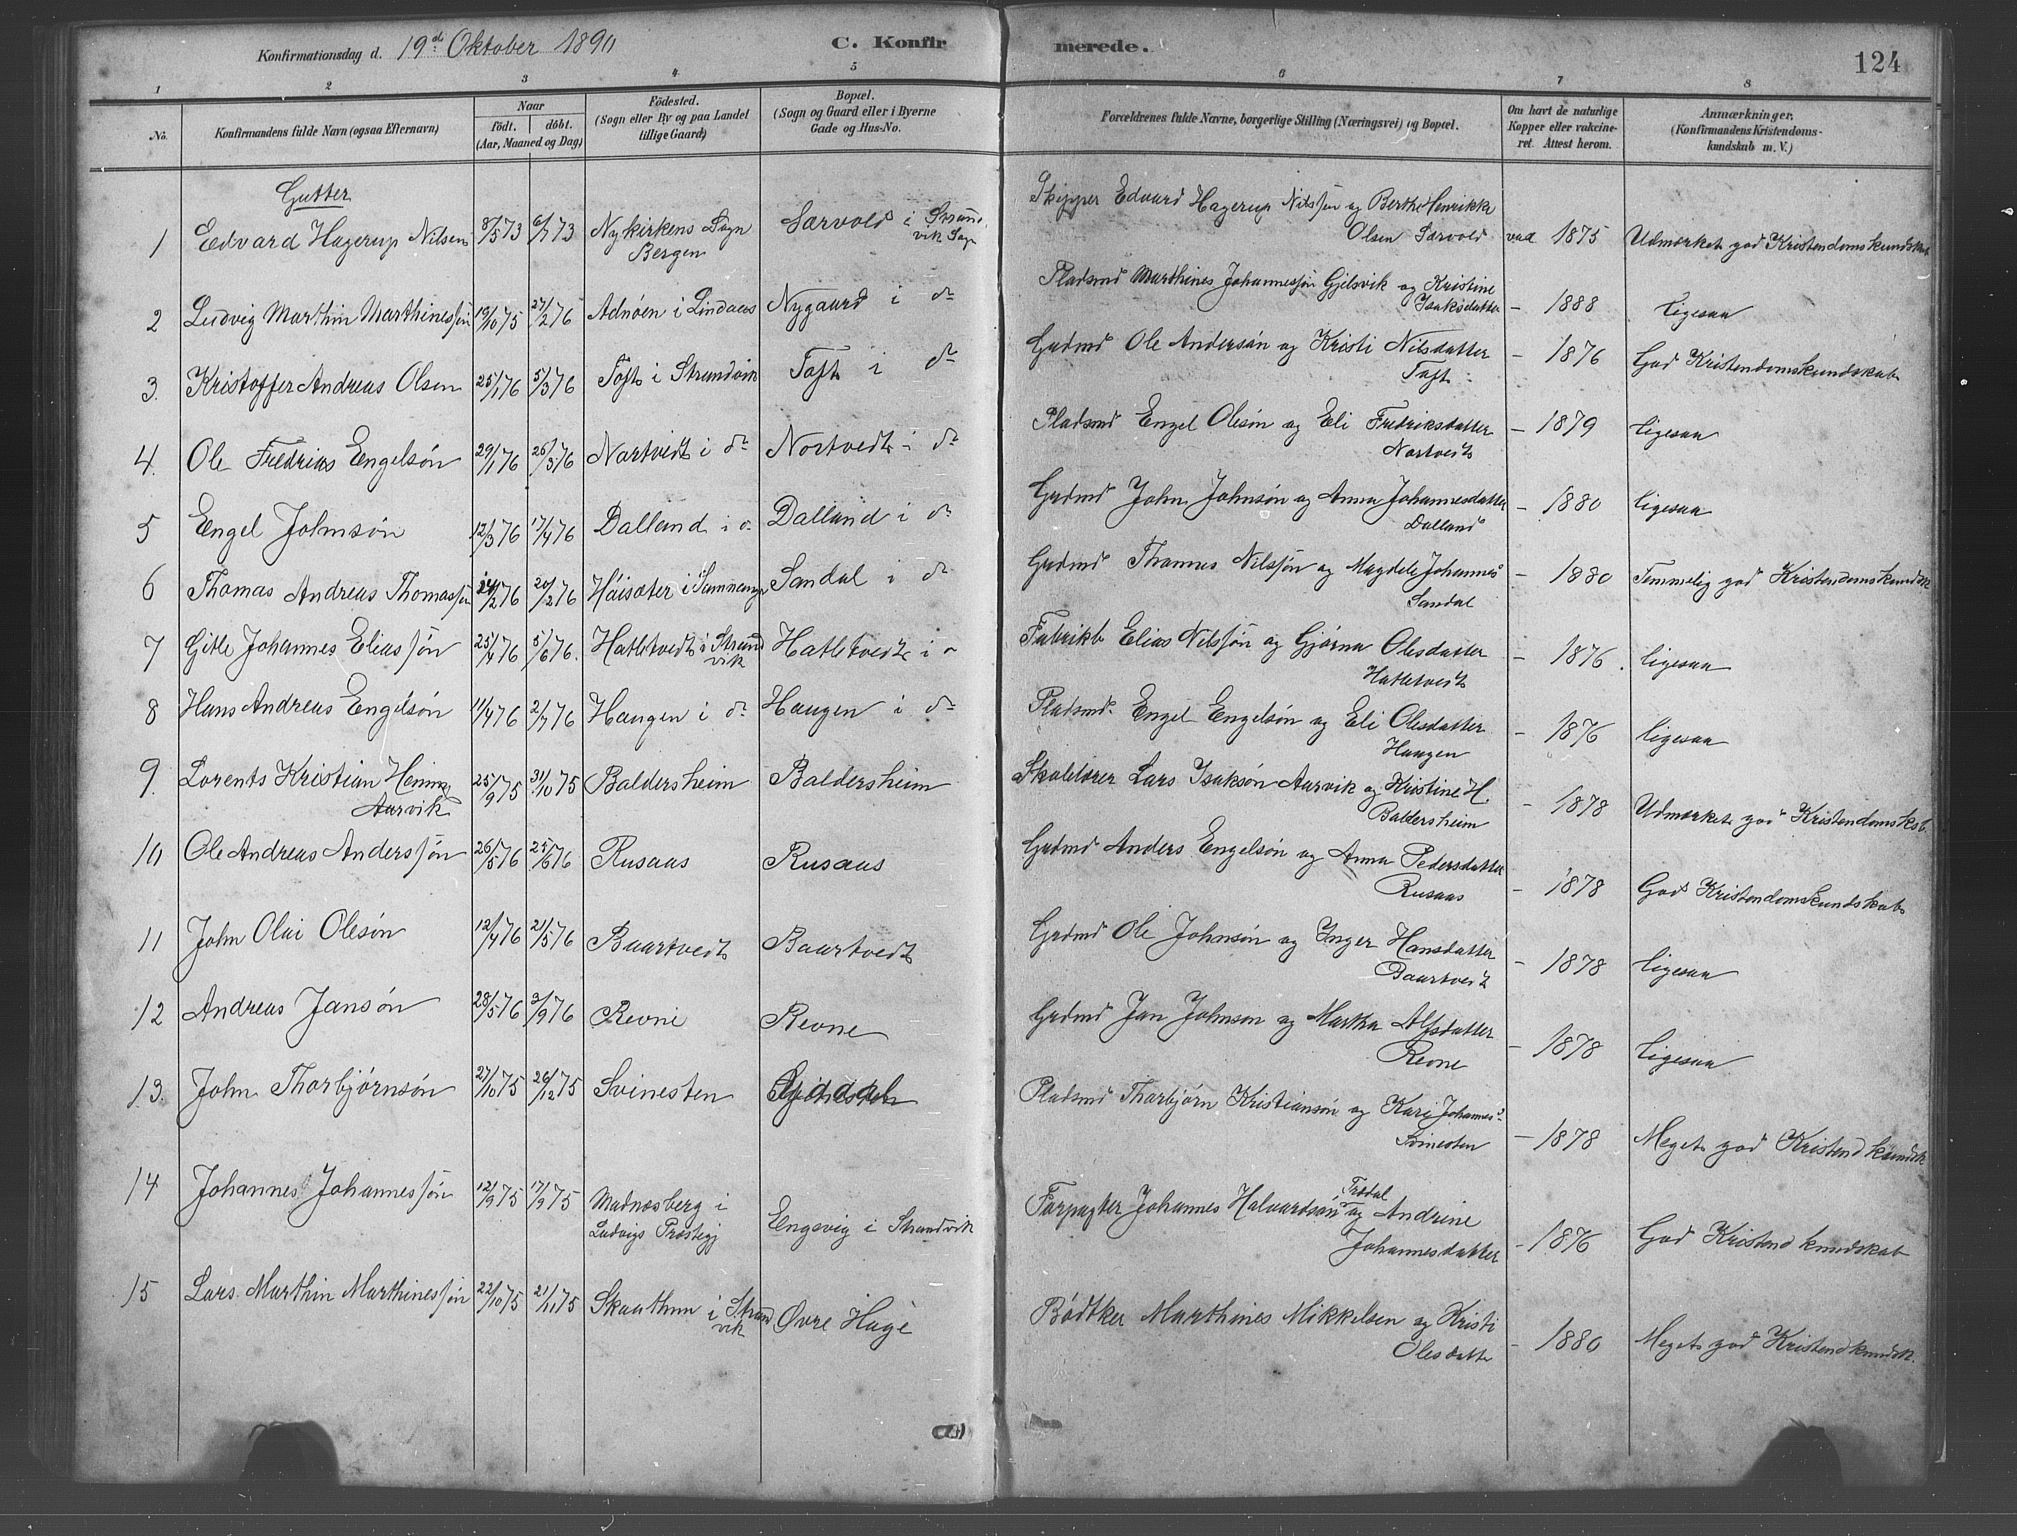 Konfirmationsdag d. 19d Oktober 1890
C. Konfirmerede.
124
1 2 3 4 5 6 7 8
No.
Konfirmandens fulde Navn (ogsaa Efternavn)
Naar
født. døbt.
(Aar, Maaned og Dag)
Fødested.
(Sogn eller By og paa Landet
tillige Gaard)
Bopæl.
(Sogn og Gaard eller i Byerne
Gade og Hus-No.
Forældrenes fulde Navne, borgerlige Stilling (Næringsvei) og Bopæl.
Om havt de naturlige
Kopper eller vakcine-
ret. Attest herom.
Anmærkninger.
(Konfirmandens Kristendoms-
kundskab m. V.)
Gutter
1 Edvard Hagerup Nilsen 8/5 73 6/7 73 Nykirkens Sogn Bergen Særvold i Strandvik Sogn Skipper Edvard Hagerup Nilssen og Berthe Henrikke Olsen Særvold vac 1875 Udmærket god Kristendomskundskab
2 Ludvig Marthin Marthinessøn 19/10 75 27/2 76 Adnøen i Lindaas Nygaard i do Pladsmd Marthines Johannessøn Gjelsvik og Kristine Isaksdatter – 1888 ligesaa
3. Kristoffer Andreas Olsen 25/1 76 5/3 76 Toft i Strandvik Toft i do Grdmd Ole Andersøn og Kristi Nilsdatter Toft – 1876 God Kristendomskundskab
4. Ole Fredrias Engelsøn 29/1 76 26/3 76 Nortvedt i do Nortvedt i do Pladsmd Engel Olesøn og Eli Fredriksdatter Nortvedt – 1879 ligesaa
5 Engel Johnsøn 12/3 76 17/4 76 Dalland i do Dalland i do Grdmd John Johnsøn og Anna Johannesdatter Dalland – 1880 ligesaa
6 Thomas Andreas Thomassøn 14/2 76 20/2 76 Høisæter i Samnanger Sandal i do Grdmd Thomas Nilssøn og Magdele Johannes Sandal – 1880 Temmelig god Kristendomskundsk
7 Gitle Johannes Eliassøn 25/4 76 5/6 76. Hatletvedt i Strandvik Hatletvedt i do Fabrikb Elias Nilssøn og Gjørna Olesdatter Hatletvedt – 1876. ligesaa
8 Hans Andreas Engelsøn 11/4 76 2/7 76 Haugen i do Haugen i do Pladsmd. Engel Engelsøn og Eli Olesdatter Haugen – 1876 ligesaa
9. Lorents Kristian Hening Aarvik 25/9 75 31/10 75 Baldersheim Baldersheim Skolelærer Lars Isaksøn Aarvik og Kristine H. Baldersheim – 1878 Udmærket god Kristendomskab.
10 Ole Andreas Anderssøn 26/5 76 25/6 76 Rusaas Rusaas Grdmd Anders Engelsøn og Anna Pedersdatter Rusaas – 1878 God Kristendomskundskab
11 John Olai Olesøn 12/4 76 21/5 76 Baartvedt Baartvedt Grdmd Ole Johnsøn og Inger Hansdatter Baartvedt – 1878 ligesaa
12 Andreas Jansøn 28/5 76 3/9 76 Revne Revne Grdmd Jan Johnson og Martha Alfsdatter Revne – 1878 ligesaa
13. John Thorbjørnsøn 27/10 75 26/12 75 Svinesten Pladsmd Thorbjørn Kristiansøn og Kari Johannes Svinesten – 1878 Meget god Kristend kundsk
14 Johannes Johannessøn 12/9 75 17/9 75 Madnæsberg i Ludvigs Præstegj Engevig i Strandvik Forpagter Johannes Halvardsøn Trædal og Andrine Johannesdatter – 1876 God Kristend kundskab
15 Lars Marthin Marthinessøn 22/10 75 21/11 75 Skaathun i Strandvik Øvre Hage Bødtker Marthines Mikkelsen og Kristi Olesdatte – 1880 Meget god Kristendkundsk.